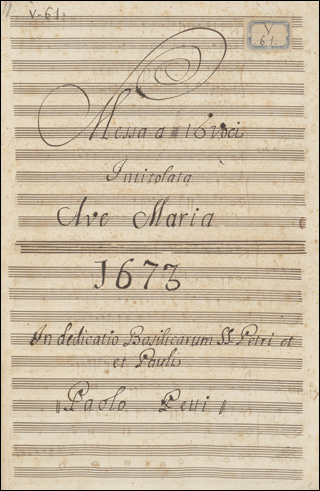 V-61
V
61
Messa a 16 voci
Intitolata
Ave Maria
1673
In dedicatio Basilicarum SS. Petri et
et Pauli
Paolo Petti